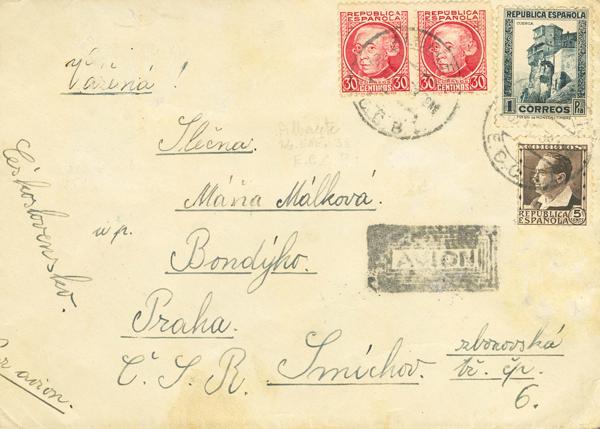 REPÚBLICA ESPAÑOLA
30 CENTIMOS 30
REPÚBLICA ESPAÑOLA
30 CENTIMOS 30
REPÚBLICA ESPAÑOLA
CUENCA
1 CORREOS Pta
CORREOS
REPÚBLICA ESPAÑOLA 5 CENTS
Slečna.
Albacete
E.C.C.B.
Máňa Málková.
u p.
Bondýho.
AVION
Praha.
Č. S. R. Smíchov. zborovská
tř. čp.
6.
Československo.
Par avion.